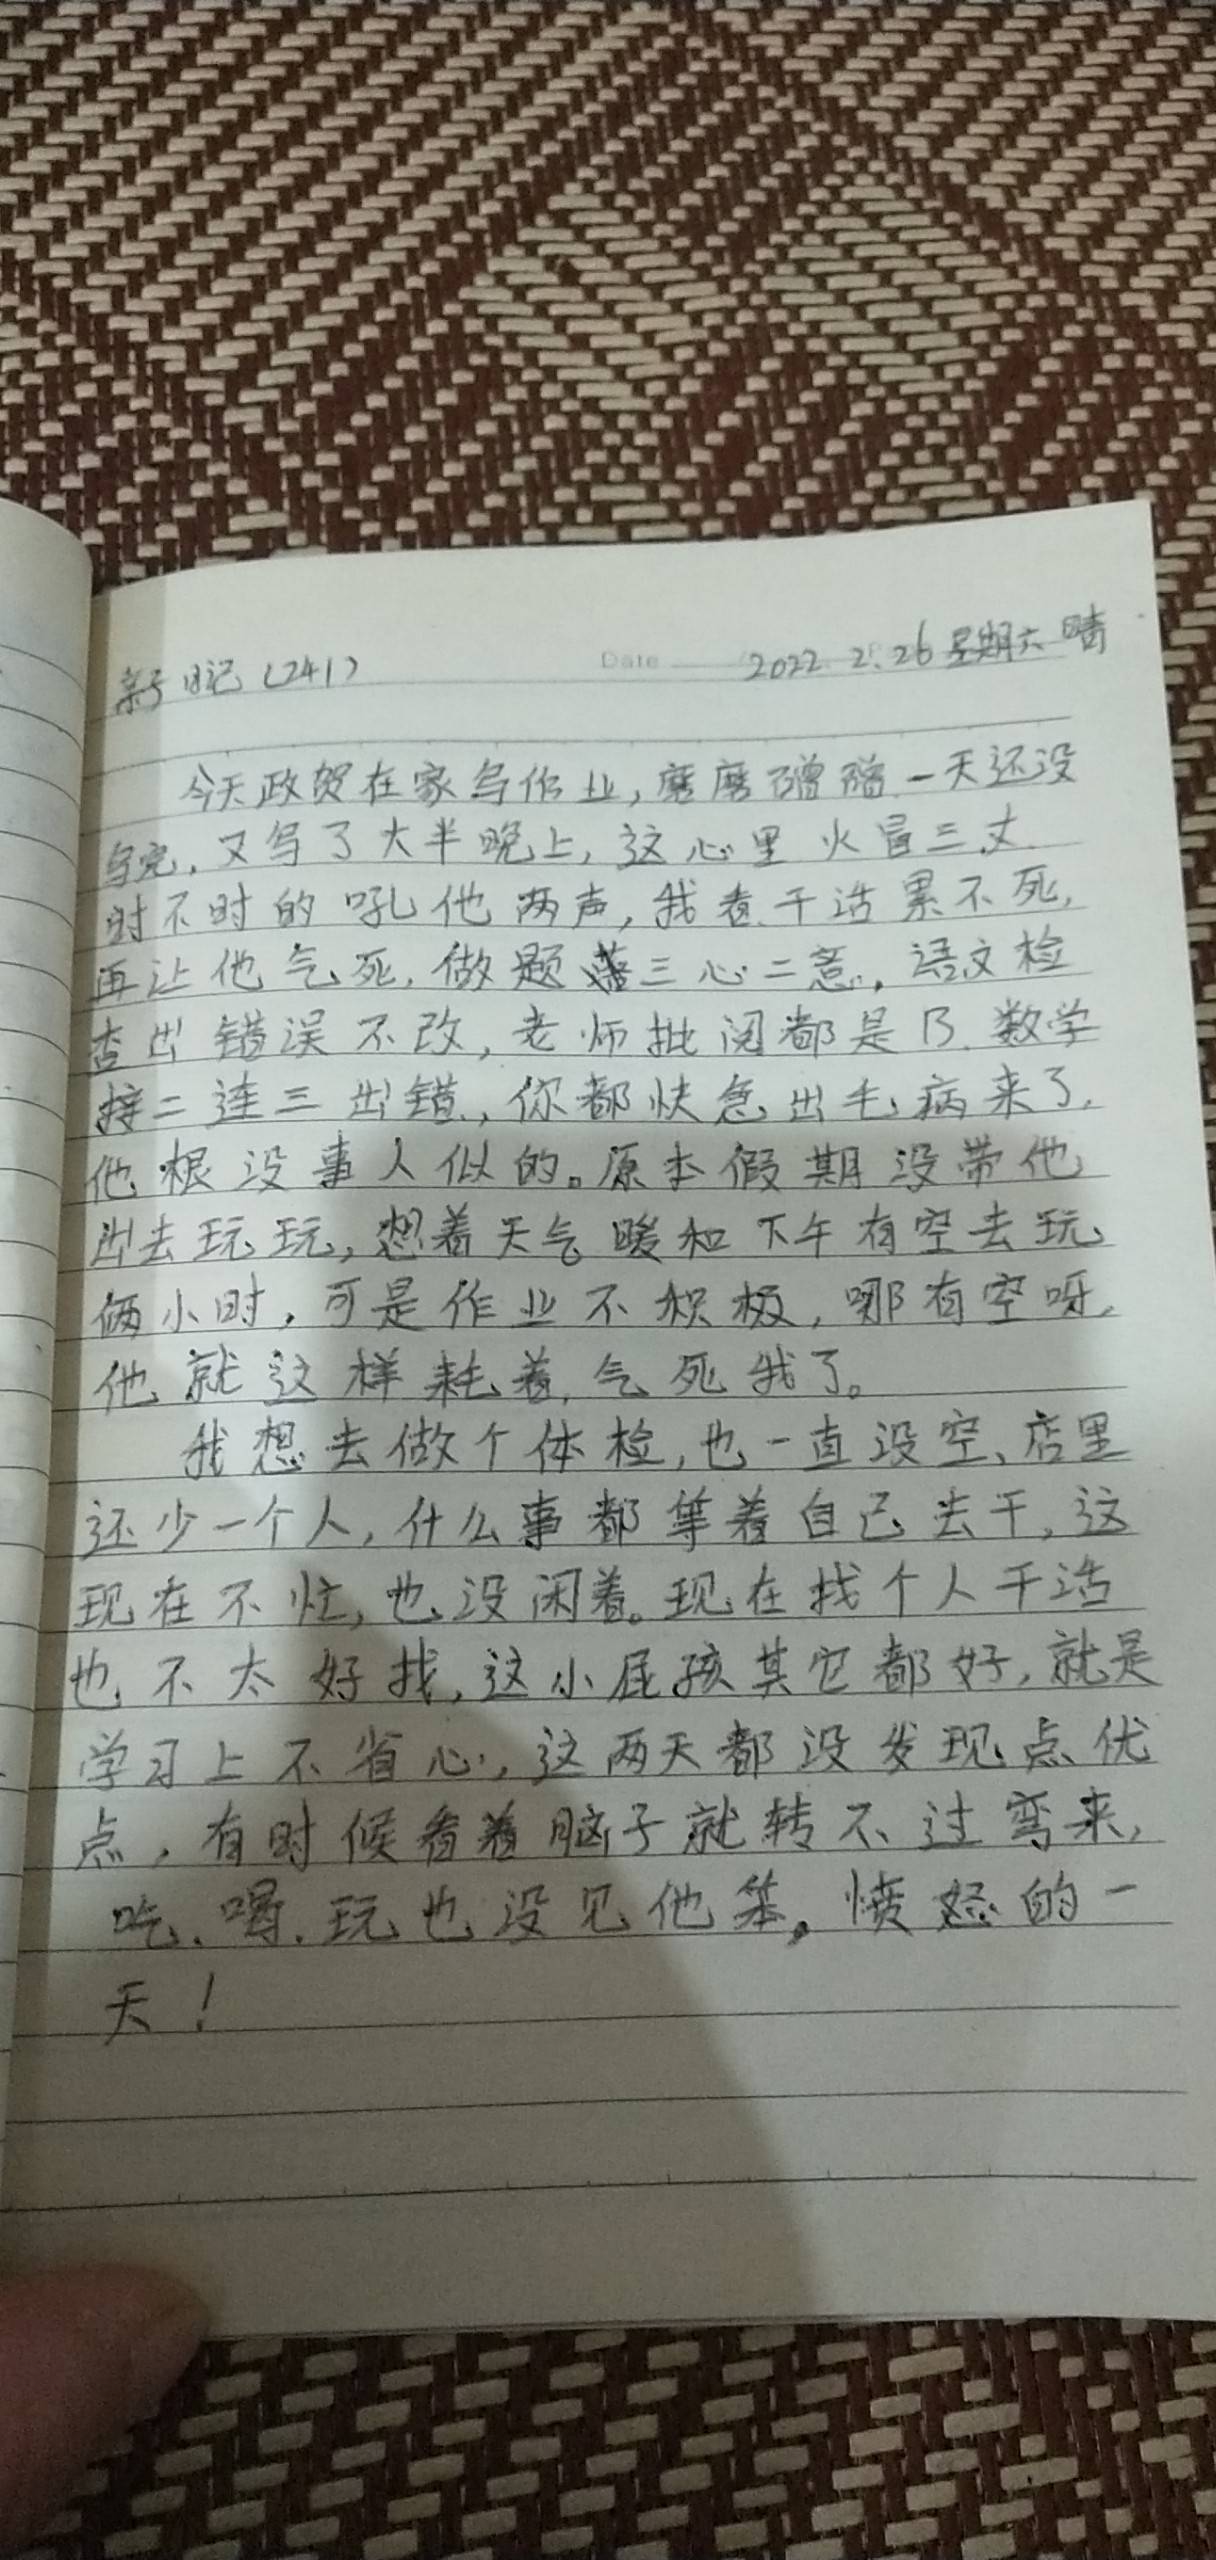 亲子日记（241）
Date 2022.2.26 星期六 晴
今天政贺在家写作业，磨磨蹭蹭一天还没
写完，又写了大半晚上，这心里火冒三丈
时不时的吼他两声，我看干活累不死，
再让他气死，做题三心二意，语文检
查出错误不改，老师批阅都是B.数学
接二连三出错，你都快急出毛病来了，
他根没事人似的。原本假期没带他
出去玩玩，想着天气暖和下午有空去玩
俩小时，可是作业不积极，哪有空呀，
他就这样耗着，气死我了。
我想去做个体检，也一直没空、店里
还少一个人，什么事都等着自己去干，这
现在不忙，也没闲着。现在找个人干活
也不太好找，这小屁孩其它都好，就是
学习上不省心，这两天都没发现点优
点，有时候看着脑子就转不过弯来，
吃、喝、玩也没见他笨。愤怒的一
天！